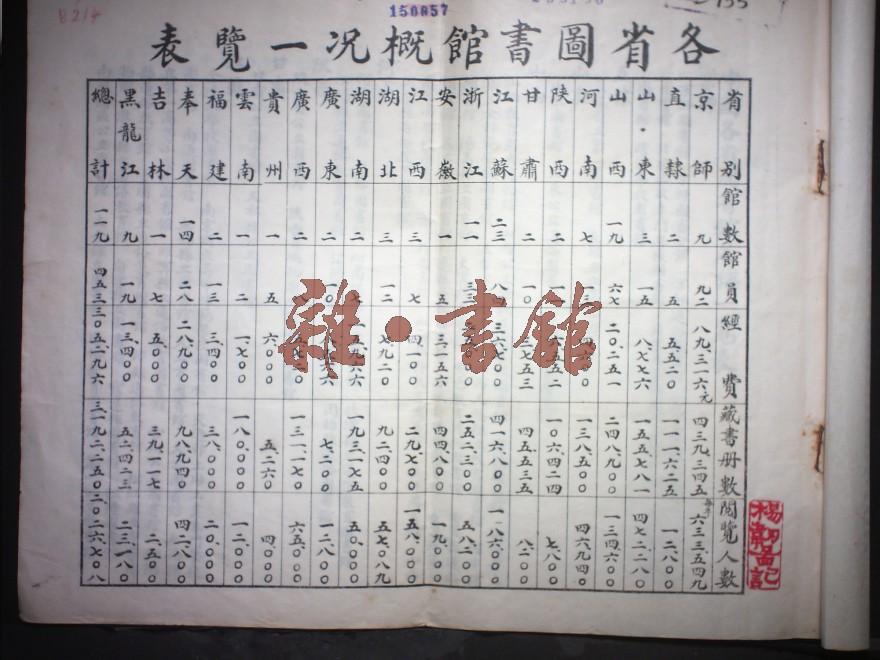 150857
各省圖書館概况一覽表
省別 館數 館員 經費 藏書册數 閱覽人數
京師 九 九二 八九、三一六元 四三九、三四五 每年 六三三、五四九
直隸 二 五 五五二〇 一一一、六二五 一二、八〇〇
山東 三 一五 八、七七六 一五五、七八一 四七二、二八〇
山西 一九 六七 二〇、二五一 二四八、九〇〇 一三四、六〇〇
河南 七 一三八、五〇〇 四六、九四〇
陝西 二 一〇六、四二四 七、八〇〇
甘肅 二 一〇 三七五三 四五、五三五 八、二〇〇
江蘇 二三 八四 三六、七〇〇 四一六、八〇〇 一八六、〇〇〇
浙江 一一 三三 二五二、三〇〇 五八、二〇〇
安徽 一 五 三一五六 四四、八〇〇 一九、〇〇〇
江西 三 七 四、一〇〇 二九、七〇〇 一五八、〇〇〇
湖北 三 一二 七、九二〇 九二、四〇〇 五七、八〇九
湖南 二 一九三、一七五 五〇、〇〇〇
廣東 二 一〇 七、二〇〇 一二、八〇〇
廣西 二 八 一三一、一七〇 六五、〇〇〇
貴州 一 五 六、〇〇〇 五、二六〇 四、〇〇〇
雲南 一 二 一、七〇〇 一八〇、〇〇〇 一二、〇〇〇
福建 二 一三 三、四〇〇 三八、〇〇〇 二〇、〇〇〇
奉天 一四 二八 二八、九〇〇 九八、九四〇 四二、八〇〇
吉林 一 七 五、〇〇〇 三九、一一七 二、五〇〇
黑龍江 九 一九 一三、四〇〇 五二、四二三 二三、一八〇
總計 一一九 四五三 三〇五、二九六 三、一九二、二五〇 二、〇二六、七〇八
雜·書館